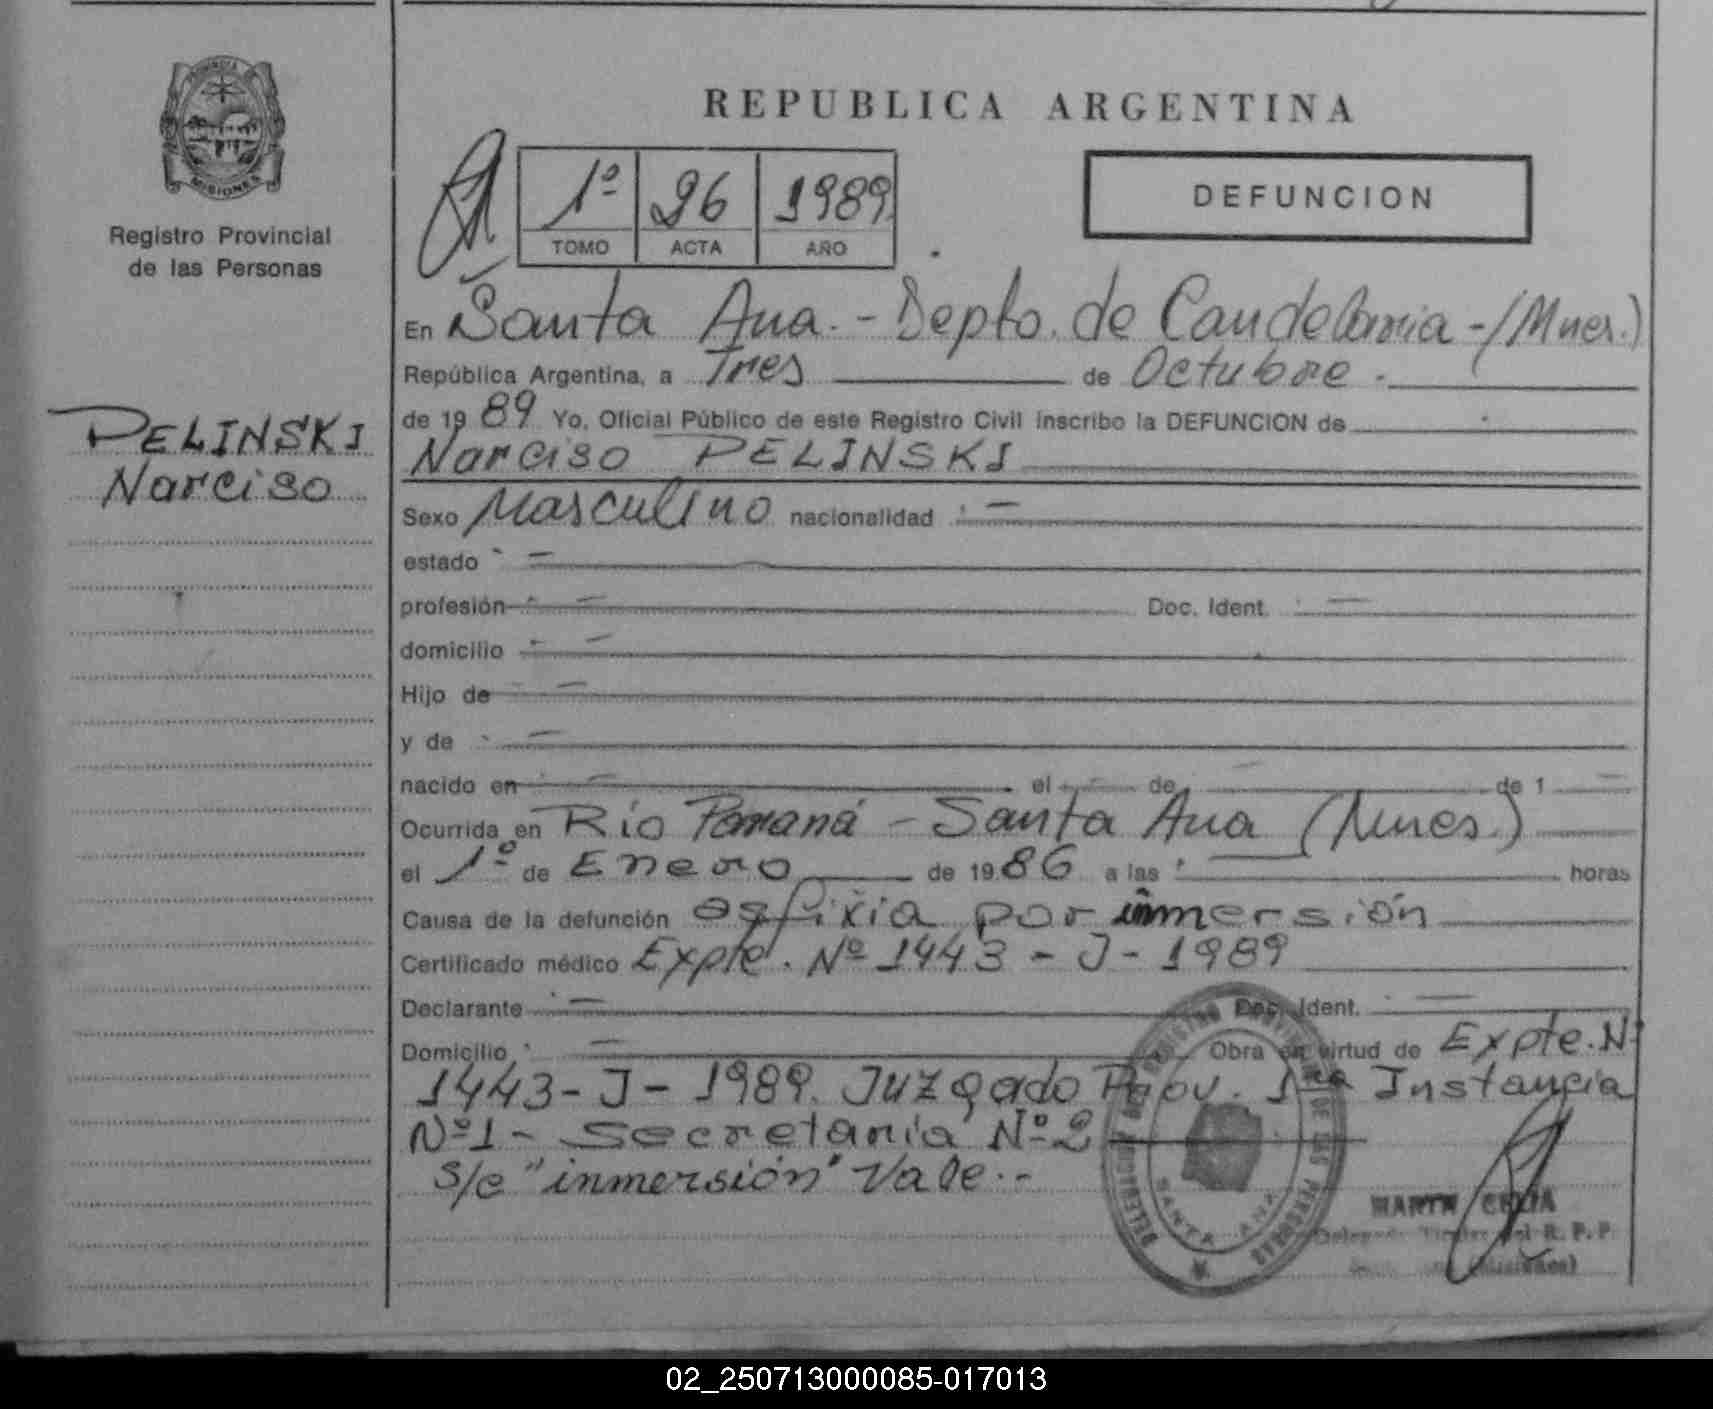 PROVINCIA DE
MISIONES
Registro Provincial
de las Personas
PELINSKI
Narciso
REPUBLICA ARGENTINA
1º 26 1989
TOMO ACTA AÑO
DEFUNCION
En Santa Ana.- Depto. de Candelaria -(Mnes.)
República Argentina, a Tres de Octubre.
de 1989 Yo, Oficial Público de este Registro Civil inscribo la DEFUNCION de
Narciso PELINSKI
Sexo Masculino nacionalidad : —
estado —
profesión — Doc. Ident. : —
domicilio : —
Hijo de —
y de —
nacido en — el — de — de 1 —
Ocurrida en Río Paraná - Santa Ana (Mnes.)
el 1º de Enero de 1986 a las : — horas
Causa de la defunción asfixia por inmersión
Certificado médico Expte. Nº 1443 - J - 1989
Declarante : — Doc. Ident. : —
Domicilio : — Obra en virtud de Expte. Nº
1443 - J - 1989. Juzgado Prov. 1ra Instancia
Nº 1 - Secretaría Nº 2
s/e "inmersión" Vale.-
REGISTRO PROVINCIAL DE LAS PERSONAS
SANTA ANA
MARTA CELIA
R. P. P.
(Misiones)
02_250713000085-017013